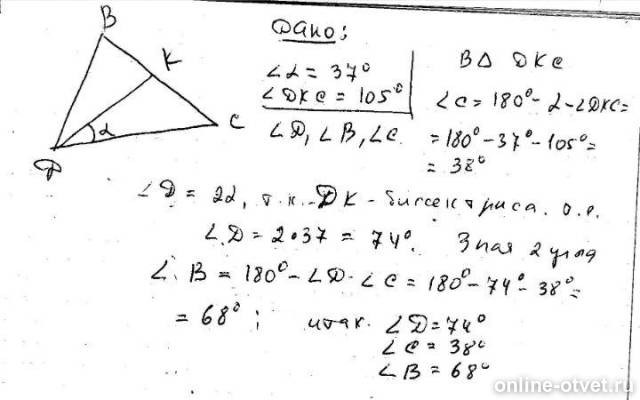 B
K
α
C
D
Дано:
∠α = 37°
∠DKC = 105°
∠D, ∠B, ∠C.
В Δ DKC
∠C = 180° - α - ∠DKC =
= 180° - 37° - 105° =
= 38°
∠D = 2α, т.к. DK - биссектриса. т.е.
∠D = 2•37 = 74°. Зная 2 угла
∠B = 180° - ∠D - ∠C = 180° - 74° - 38° =
= 68°; итак. ∠D = 74°
∠C = 38°
∠B = 68°
online-otvet.ru